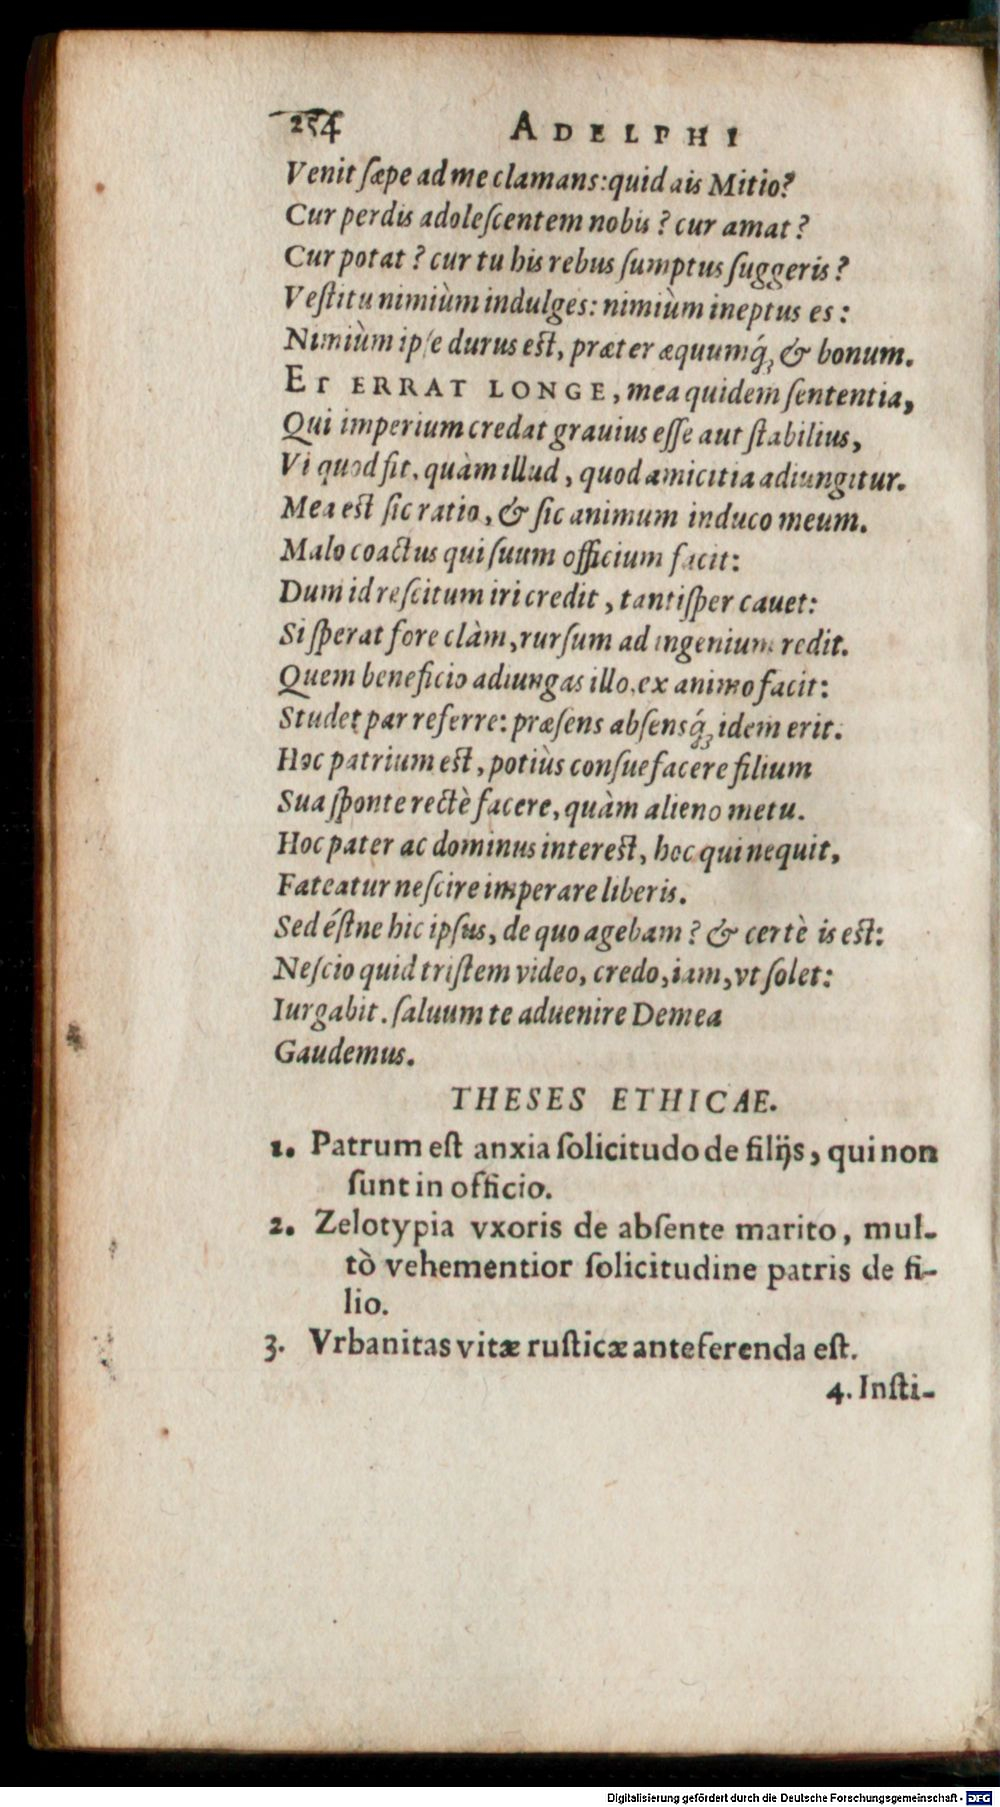 254 ADELPHI
Venit sæpe ad me clamans: quid ais Mitio?
Cur perdis adolescentem nobis? cur amat?
Cur potat? cur tu his rebus sumptus suggeris?
Vestitu nimiùm indulges: nimiùm ineptus es:
Nimiùm ipse durus est, præter æquumq́; & bonum.
ET ERRAT LONGE, mea quidem sententia,
Qui imperium credat grauius esse aut stabilius,
Vi quod fit, quàm illud, quod amicitia adiungitur.
Mea est sic ratio, & sic animum induco meum.
Malo coactus qui suum officium facit:
Dum id rescitum iri credit, tantisper cauet:
Si sperat fore clàm, rursum ad ingenium redit.
Quem beneficio adiungas illo, ex animo facit:
Studet par referre: præsens absensq́; idem erit.
Hoc patrium est, potiùs consuefacere filium
Sua sponte rectè facere, quàm alieno metu.
Hoc pater ac dominus interest, hoc qui nequit,
Fateatur nescire imperare liberis.
Sed éstne hic ipsus, de quo agebam? & certè is est:
Nescio quid tristem video, credo, iam, vt solet:
Iurgabit. saluum te aduenire Demea
Gaudemus.
THESES ETHICAE.
1. Patrum est anxia solicitudo de filijs, qui non
sunt in officio.
2. Zelotypia vxoris de absente marito, mul-
tò vehementior solicitudine patris de fi-
lio.
3. Vrbanitas vitæ rusticæ anteferenda est.
4. Insti-
Digitalisierung gefördert durch die Deutsche Forschungsgemeinschaft - DFG